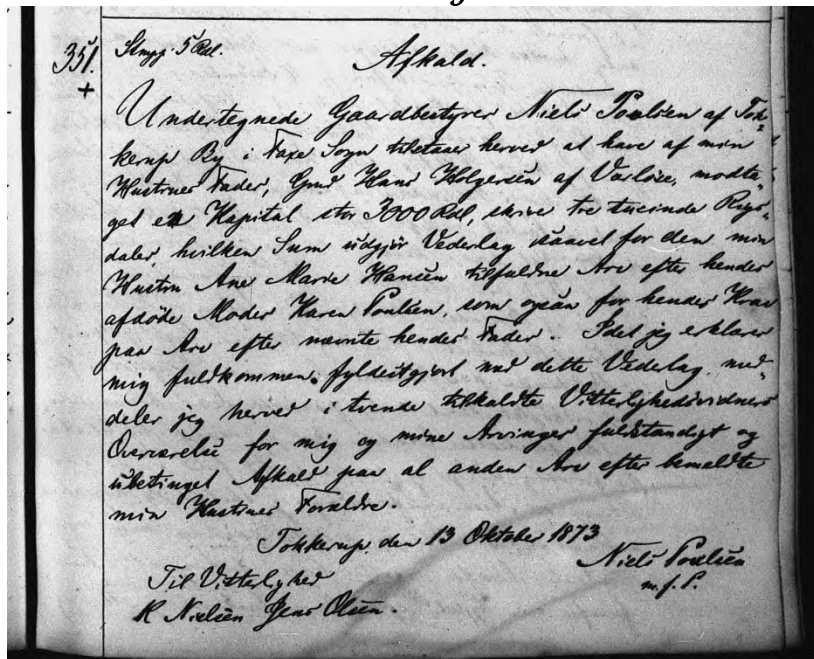 351.
+
Stmpg. 5 Rdl.
Afkald.
Undertegnede Gaardbestyrer Niels Poulsen af Tok-
kerup By i Faxe Sogn tilstaaer herved at have af min
Hustrues Fader, Gmd Hans Holgersen af Varløse, modta-
get en Kapital stor 3000 Rdl, skriver tre tusinde Rigs-
daler hvilken Sum udgjør Vederlag saavel for den min
Hustru Ane Marie Hansen tilfaldne Arv efter hendes
afdøde Moder Karen Poulsen, som ogsaa for hendes Krav
paa Arv efter nævnte hendes Fader. Idet jeg erklærer
mig fuldkommen fyldestgjort med dette Vederlag, med-
deler jeg herved i tvende tilkaldte Vitterlighedsvidners
Overværelse for mig og mine Arvinger fuldstændigt og
ubetinget Afkald paa al anden Arv efter bemeldte
min Hustrues Forældre.
Tokkerup, den 13 Oktober 1873
Niels Poulsen
m. f. P.
Til Vitterlighed
R Nielsen Jens Olsen.